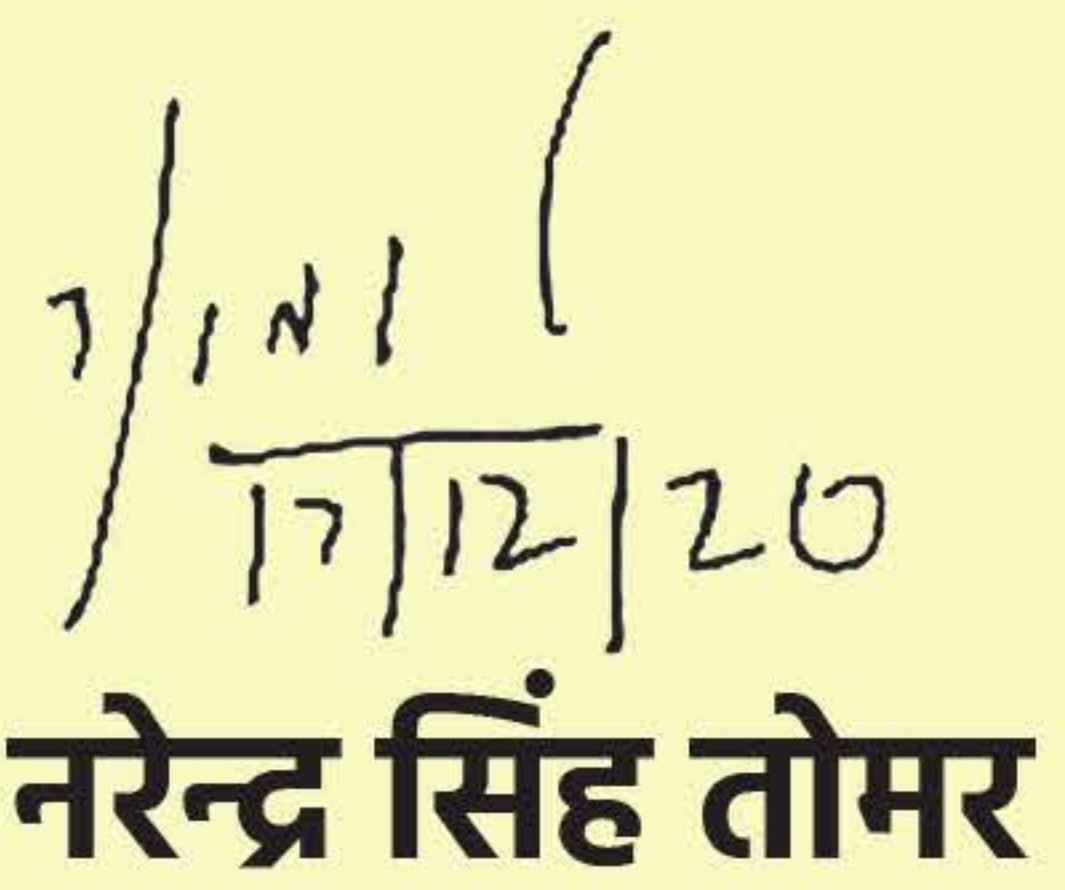 17/12/20
नरेन्द्र सिंह तोमर